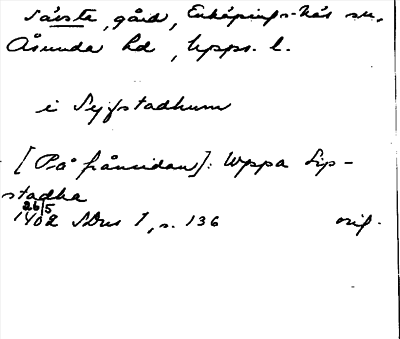 Sävsta, gård, Enköpings-Näs sn,
Åsunda hd, Upps. l.
i Sefstadhum
[På frånsidan]: Uppa Sip-
stadha
26/5
1402 SDns 1, s. 136 orig.